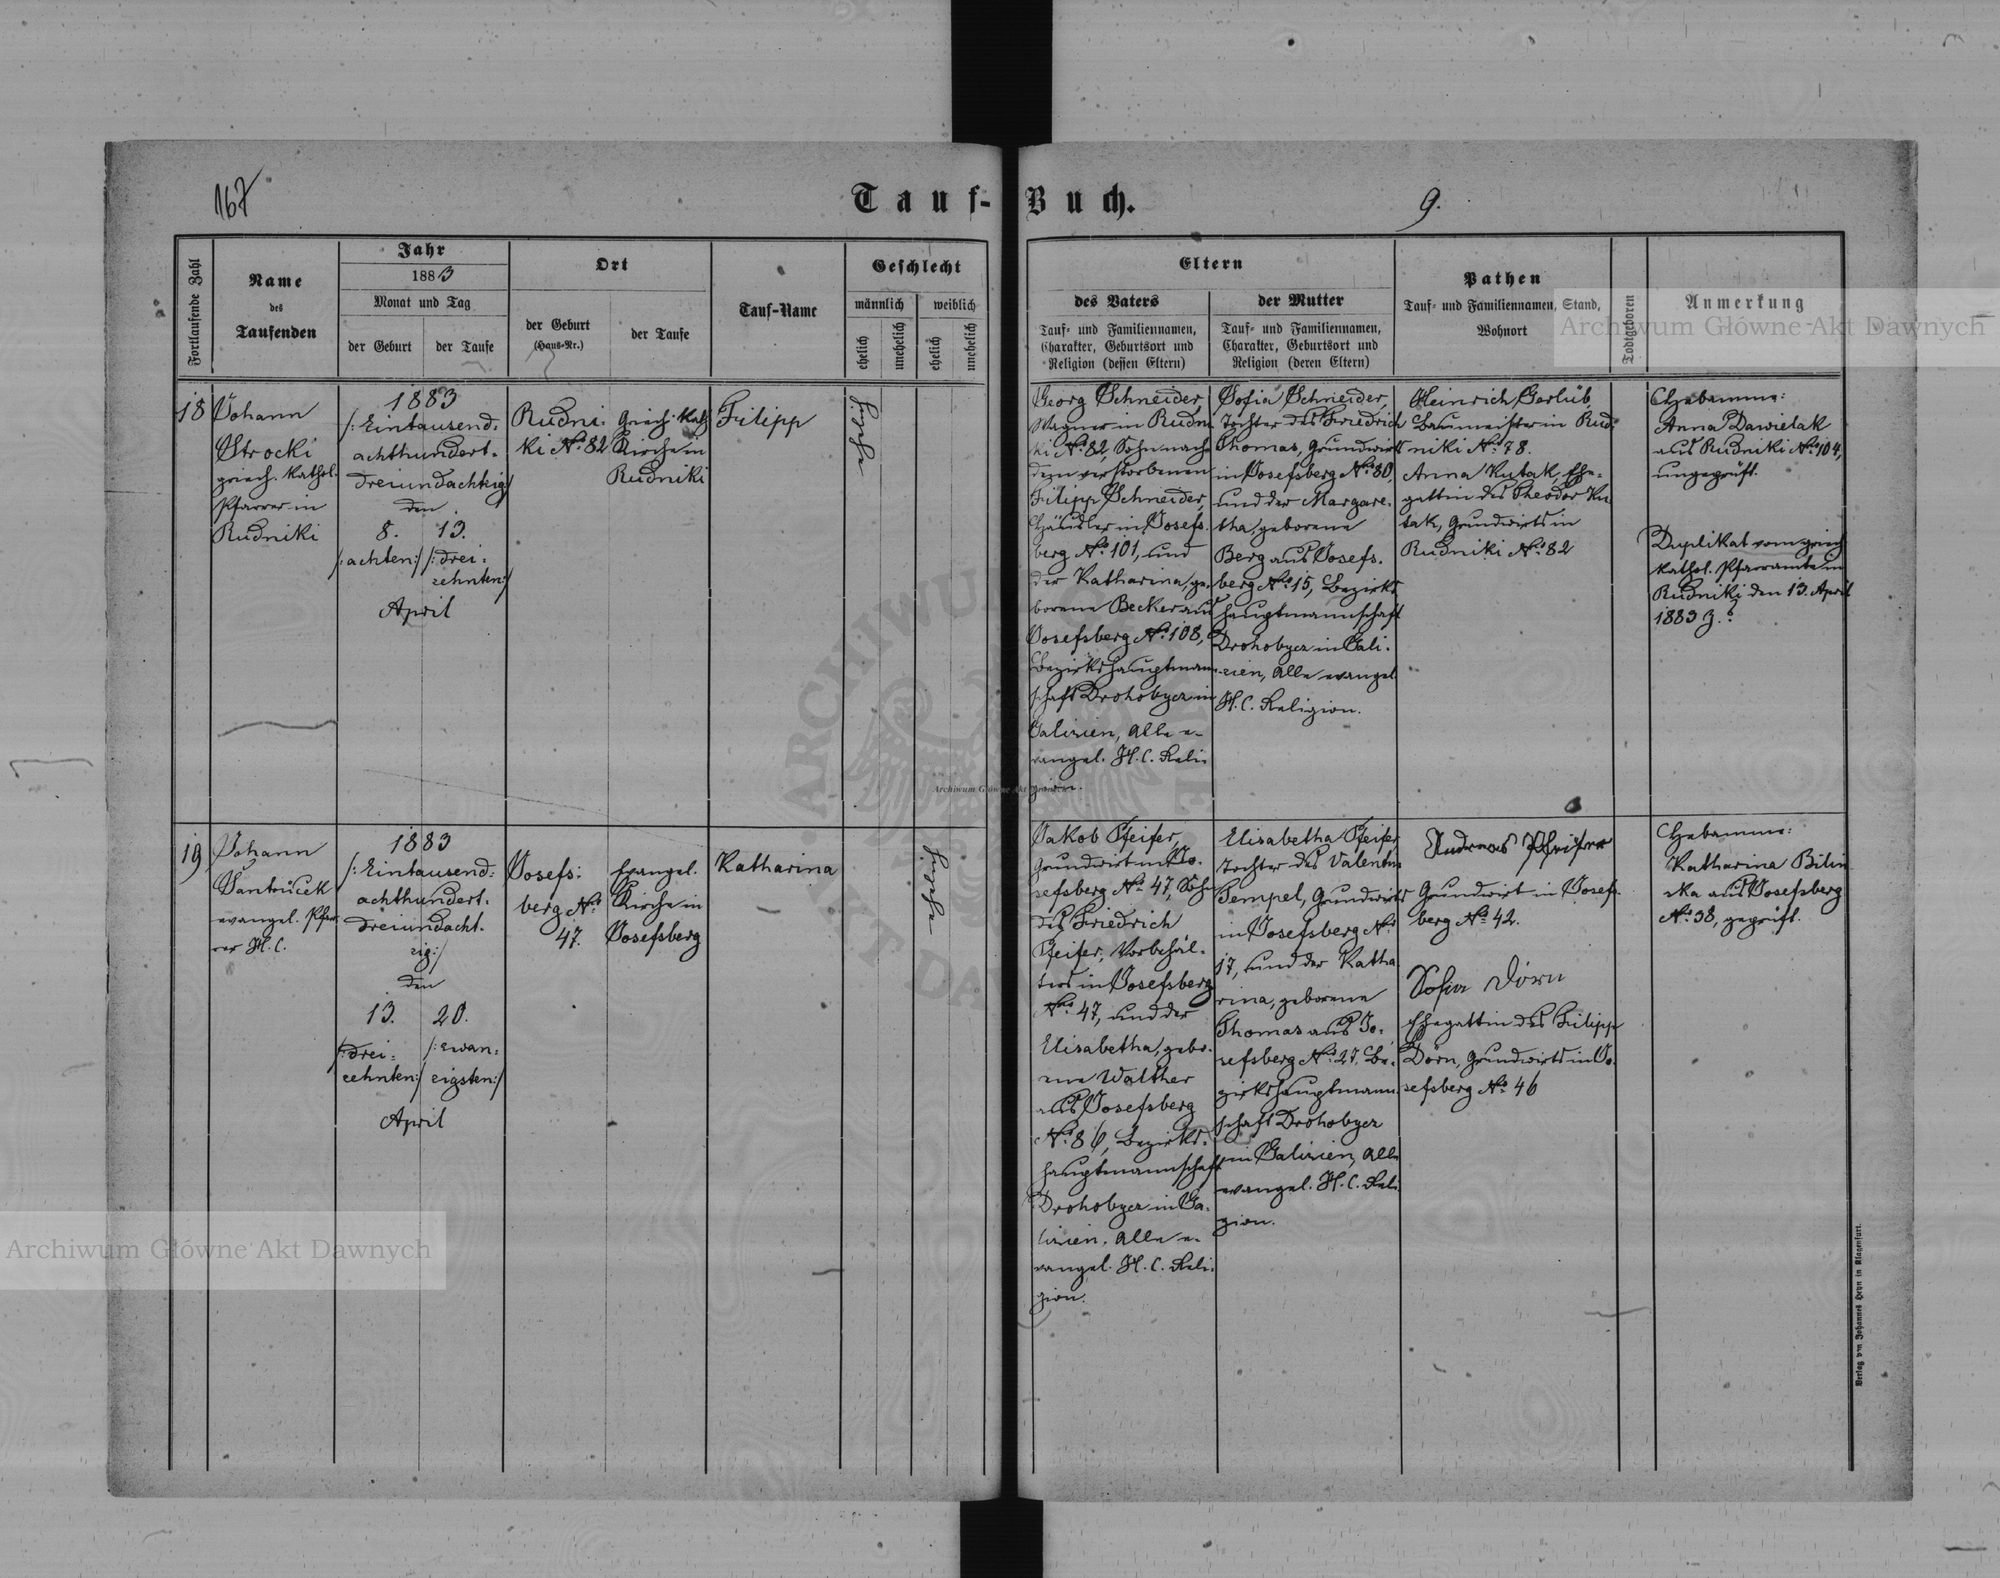 167
Tauf-Buch.
9.
Fortlaufende Zahl
Name
des
Taufenden
Jahr
1883
Monat und Tag
der Geburt
der Taufe
Ort
der Geburt
(Haus-Nr.)
der Taufe
Tauf-Name
Geschlecht
männlich
weiblich
ehelich
unehelich
ehelich
unehelich
Eltern
des Vaters
Tauf- und Familiennamen,
Charakter, Geburtsort und
Religion (dessen Eltern)
der Mutter
Tauf- und Familiennamen,
Charakter, Geburtsort und
Religion (deren Eltern)
Pathen
Tauf- und Familiennamen, Stand,
Wohnort
Todtgeboren
Anmerkung
18
Johann
Strocki
griech. kathol.
Pfarrer in
Rudniki
1883
/:Eintausend-
achthundert-
dreiundachtzig/
den
8. 13.
/:achten:/ /:drei-
zehnten:/
April
Rudni-
ki No. 82
Griech. kath.
Kirche in
Rudniki
Filipp
ehelich
Georg Schneider,
Wagner in Rudni-
ki No. 82, Sohn nach
dem verstorbenen
Filipp Schneider,
Häusler in Josefs-
berg No. 101, und
der Katharina, ge-
borene Becker aus
Josefsberg No. 108,
Bezirkshauptmann-
schaft Drohobycz in
Galizien, alle e-
vangel. H. C. Reli-
gion.
Sofia Schneider,
Tochter des Friedrich
Thomas, Grundwirts
in Josefsberg No. 80,
und der Margare-
tha, geborene
Berg aus Josefs-
berg No. 15, Bezirks-
hauptmannschaft
Drohobycz in Gali-
zien, alle evangel.
H. C. Religion.
Heinrich Gerlüb,
Baumeister in Rud-
niki No. 78.
Anna Kutak, Ehe-
gattin des Theodor Ku-
tak, Grundwirts in
Rudniki No. 82
Hebamme:
Anna Dawielak
aus Rudniki No. 104,
ungeprüft.
Duplikat vom griech.
kathol. Pfarramte in
Rudniki den 13. April
1883 Z.?
19
Johann
Jantucek
evangel. Pfar-
rer H. C.
1883
/:Eintausend-
achthundert-
dreiundacht-
zig:/
den
13. 20.
/:drei- /:zwan-
zehnten:/ zigsten:/
April
Josefs-
berg No.
47.
Evangel.
Kirche in
Josefsberg
Katharina
ehelich
Jakob Pfeifer,
Grundwirt in Jo-
sefsberg No. 47, Sohn
des Friedrich
Pfeifer, Vorbehäl-
ters in Josefsberg
No. 47, und der
Elisabetha, gebo-
rene Walther
aus Josefsberg
No. 86, Bezirks-
hauptmannschaft
Drohobycz in Ga-
lizien, alle e-
vangel. H. C. Reli-
gion.
Elisabetha Pfeifer
Tochter des Valentin
Tempel, Grundwirts
in Josefsberg No.
17, und der Katha-
rina, geborene
Thomas aus Jo-
sefsberg No. 27, Be-
zirkshauptmann-
schaft Drohobycz
in Galizien, alle
evangel. H. C. Reli-
gion.
Andreas Pfeifer
Grundwirt in Josefs-
berg No. 42.
Sofia Dörn
Ehegattin des Filipp
Dörn, Grundwirts in Jo-
sefsberg No. 46
Hebamme:
Katharina Bilin-
ska aus Josefsberg
No. 38, geprüft.
Verlag von Johannes Heyn in Klagenfurt.
Archiwum Główne Akt Dawnych
Archiwum Główne Akt Dawnych
Archiwum Główne Akt Dawnych